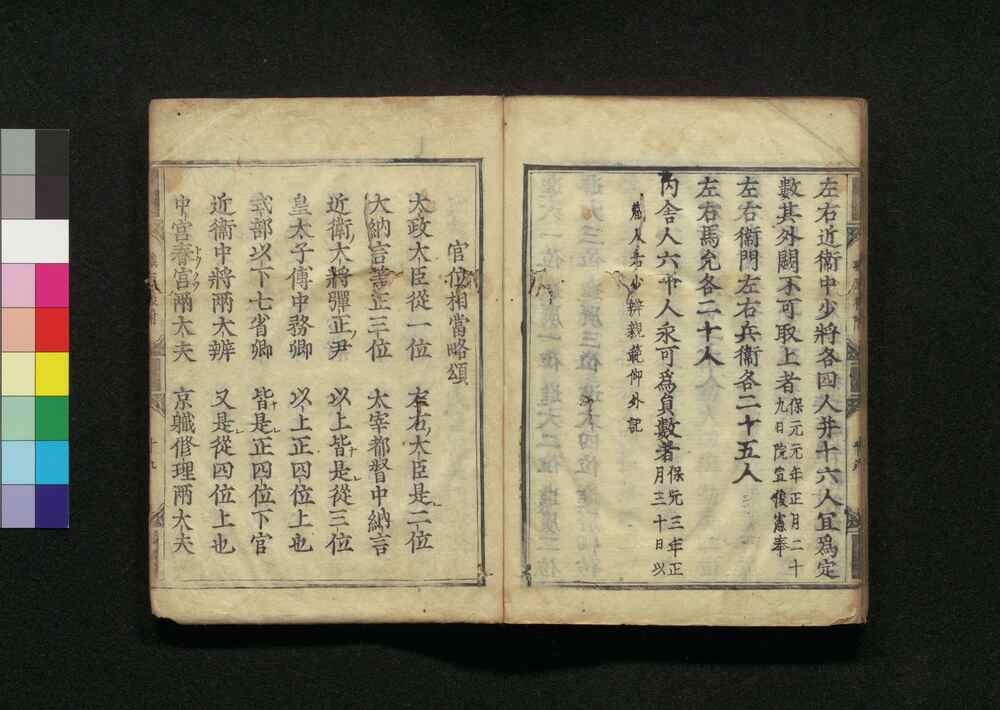 左右近衛中少將各四人并十六人宜爲定
數其外闕不可取上者保元元年正月二十
九日院宣俊憲奉
左右衛門左右兵衛各二十五人
左右馬允各二十人
內舍人六十人永可爲員數者保元三年正
月三十日以
藏人右少辨親範仰外記
官位相當略頌
大政大臣從一位 左右大臣是二位
大納言者正三位 太宰都督中納言
近衛大將彈正尹 以上皆是從三位
皇太子傅中務卿 以上正四位上也
式部以下七省卿 皆是正四位下官
近衛中將兩大辨 又是從四位上也
中宮春宮兩大夫 京職修理兩大夫